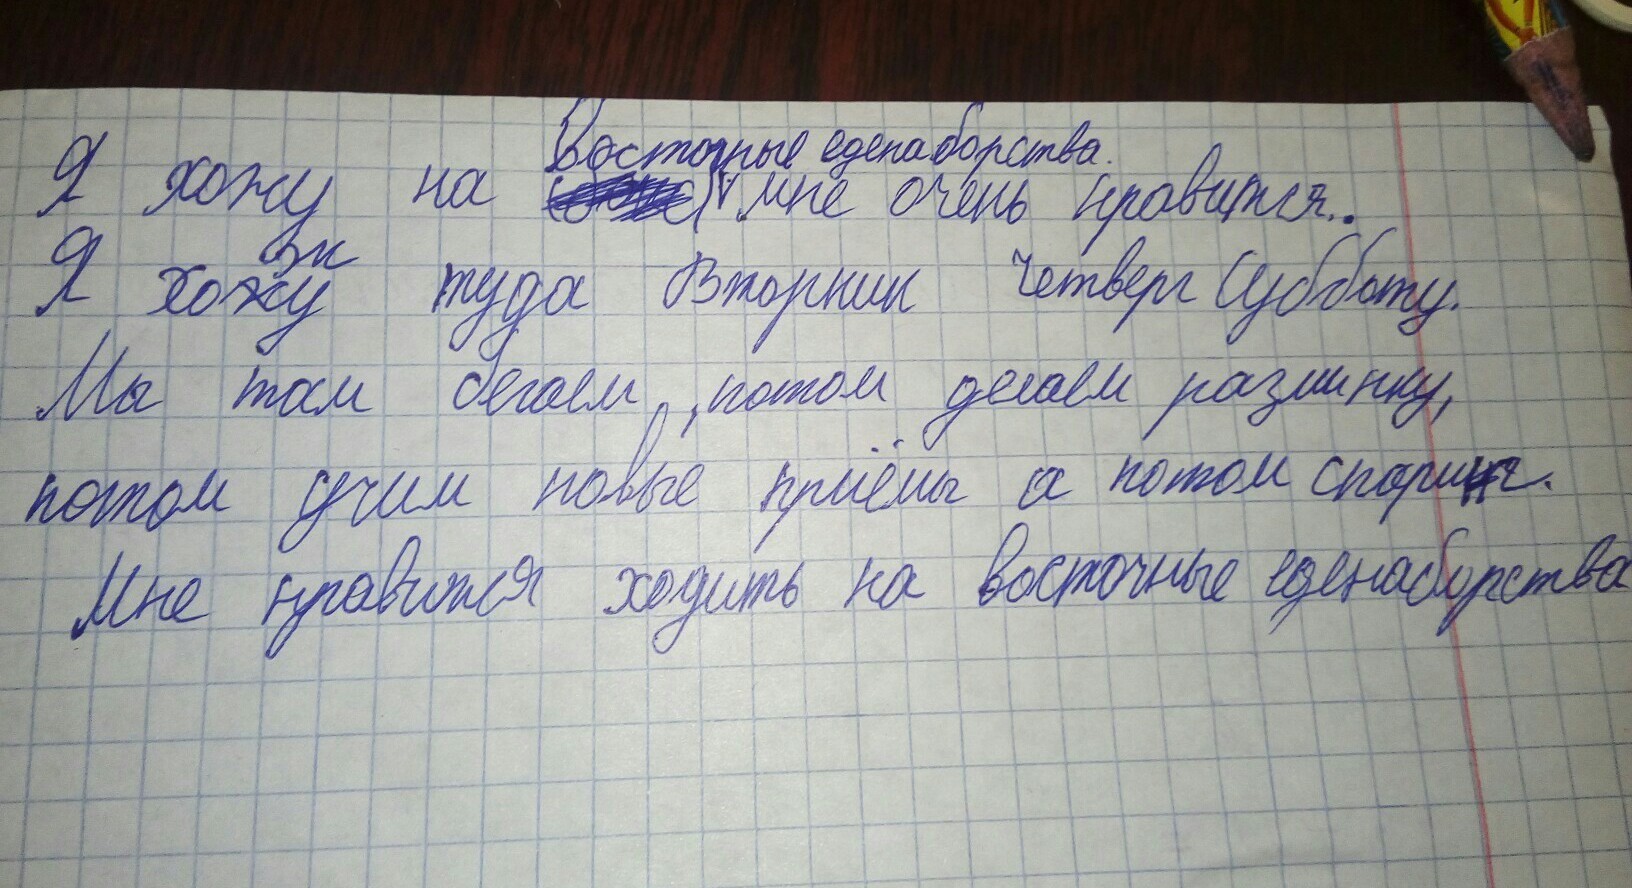 Восточные еденаборства.
Я хожу на мне очень нравится.
ж
Я хожу туда Вторник Четверг Субботу.
Мы там бегаем, потом делаем разминку,
потом учим новые приёмы а потом
Мне нравится ходить на восточные еденаборства